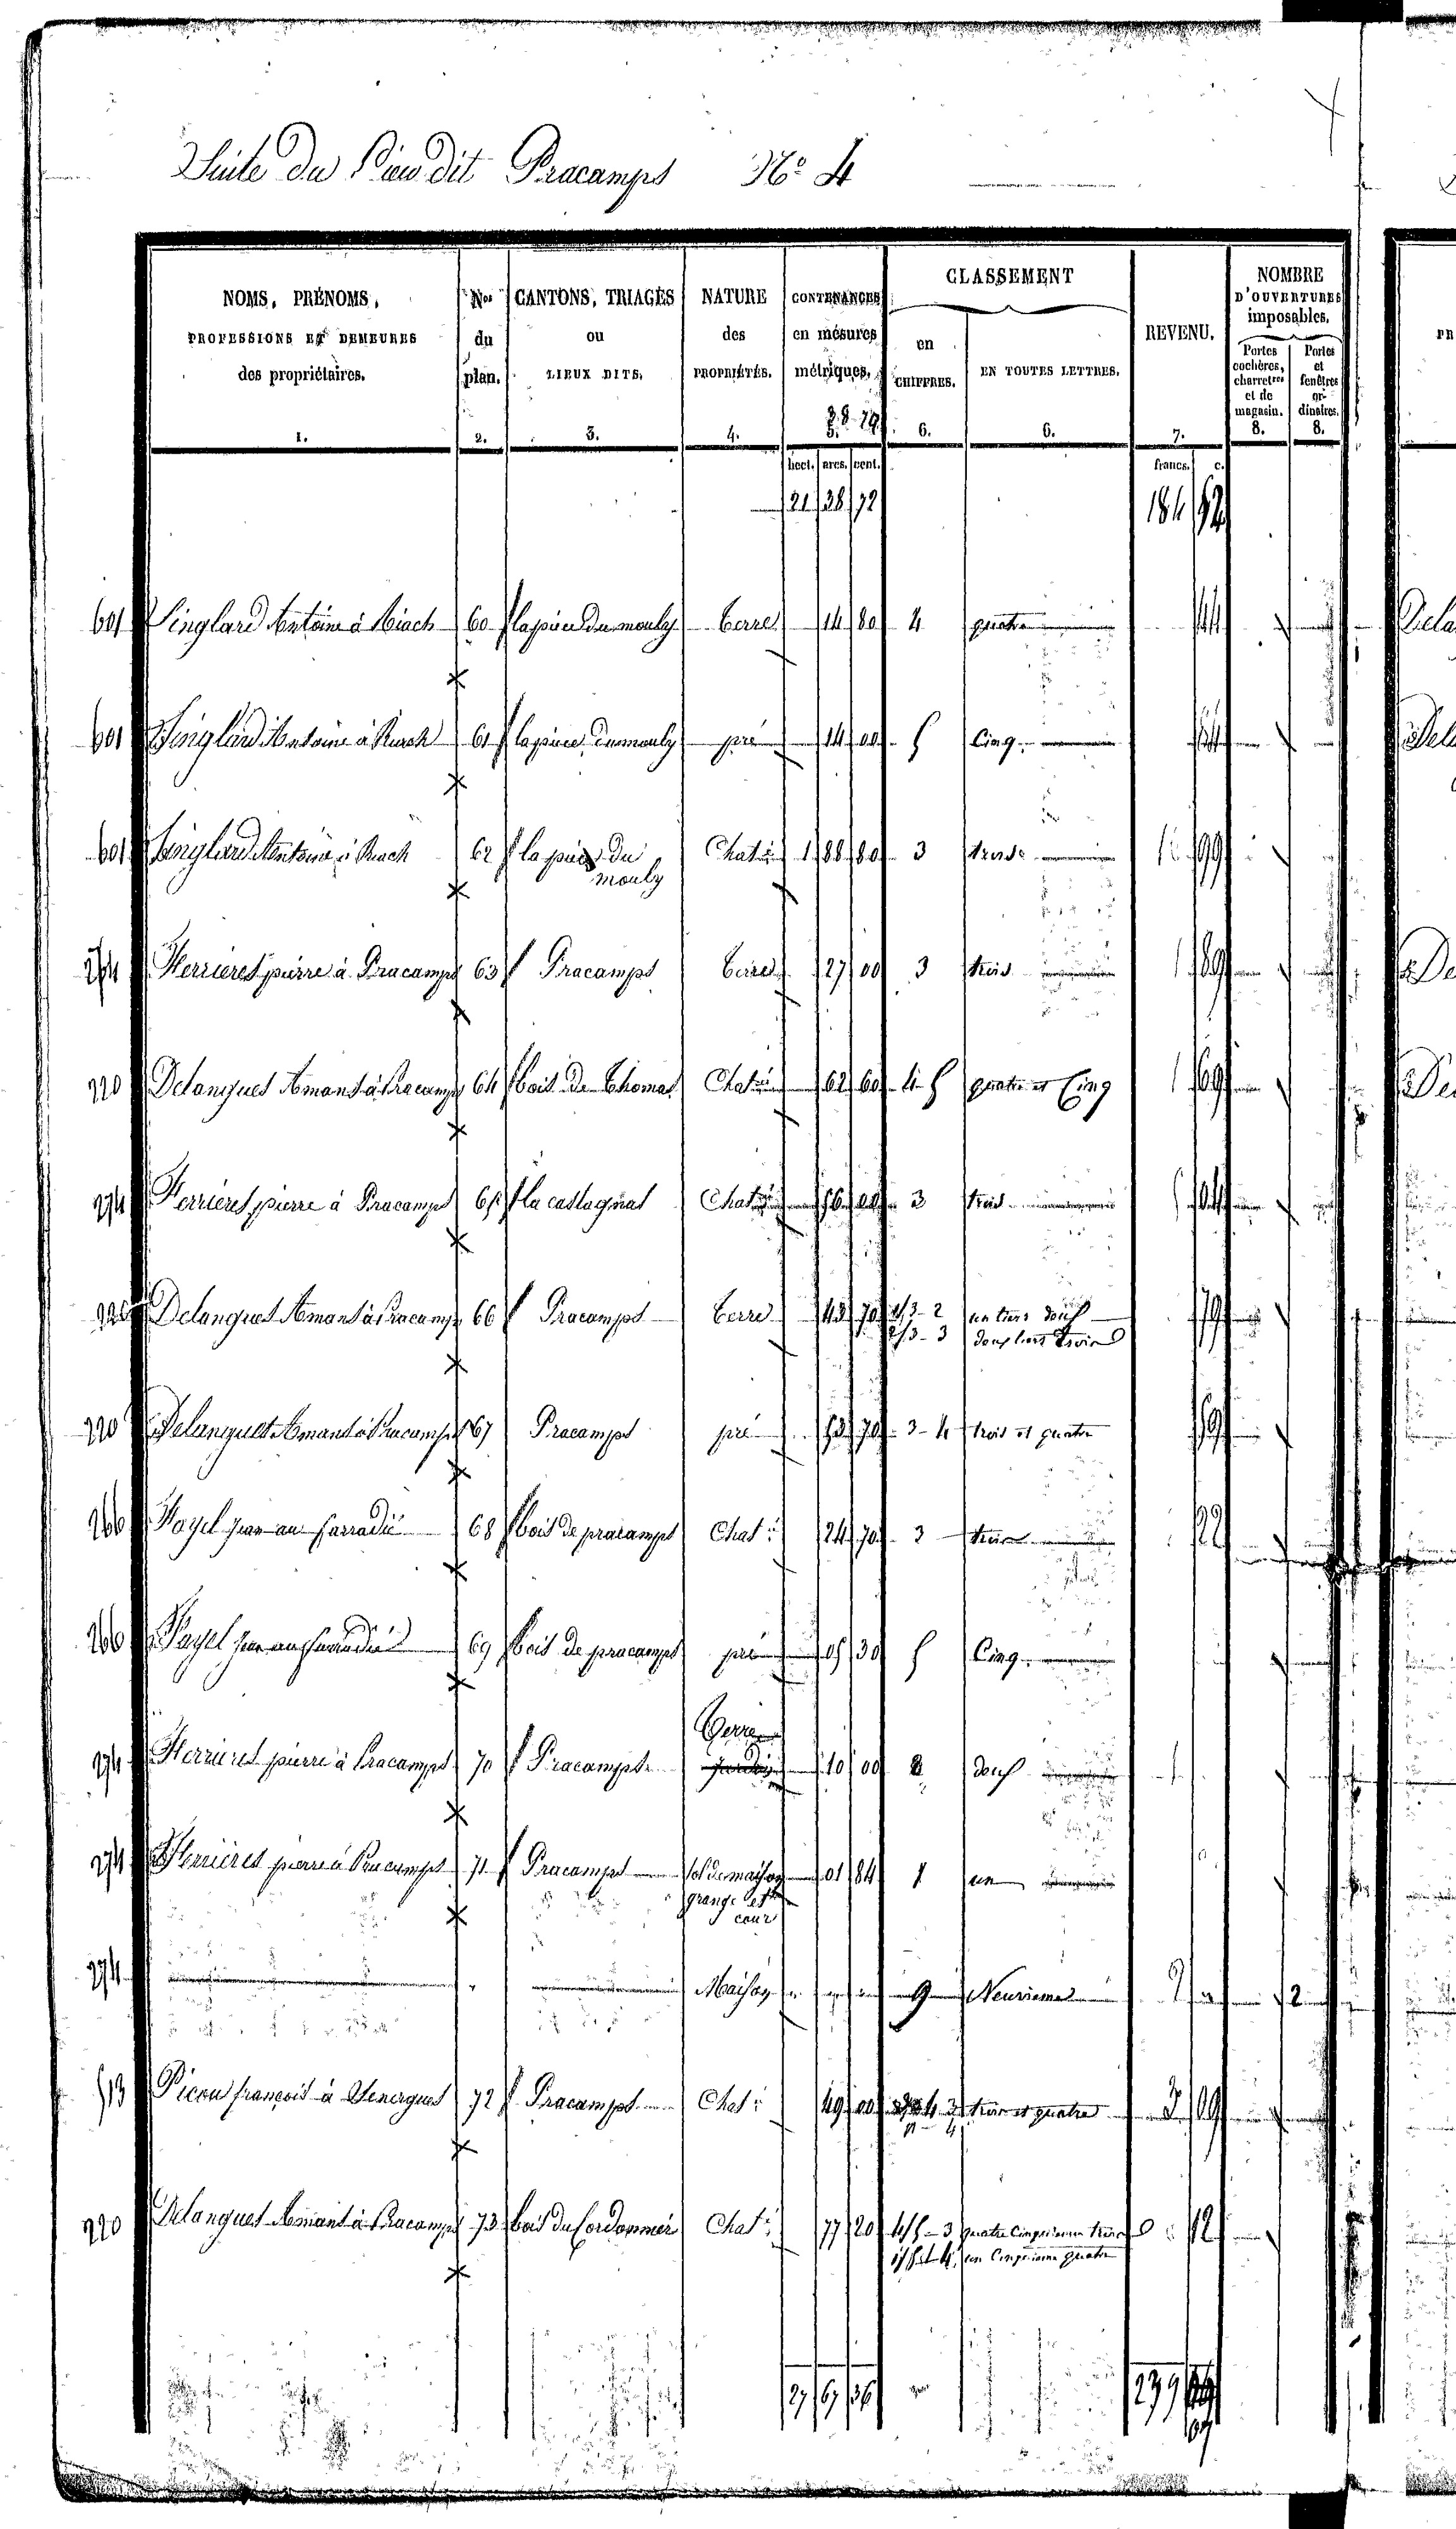 Suite du Lieu dit Pracamps N° 4
NOMS, PRÉNOMS, PROFESSIONS ET DEMEURES des propriétaires. 1.
Nos du plan. 2.
CANTONS, TRIAGES ou LIEUX DITS. 3.
NATURE des PROPRIÉTÉS. 4.
CONTENANCES en mesures métriques. 5.
CLASSEMENT
en CHIFFRES. 6.
EN TOUTES LETTRES. 6.
REVENU. 7.
NOMBRE D'OUVERTURES imposables.
Portes cochères, charretres et de magasin. 8.
Portes et fenêtres ordinaires. 8.
hect. ares. cent. francs. c.
21 38 72 184
601 Singlard Antoine à 60 la pièce du mouly terre 14 80 4 quatre 44
601 Singlard Antoine à 61 la pièce du mouly pré 14 00 5 Cinq
601 Singlard Antoine à 62 la pièce du mouly Chat. 1 88 80 3 trois 99
274 Ferrieres pierre à Pracamps 63 Pracamps terre 27 00 3 trois 1 89
220 Delangues Amans à Pracamps 64 bois de Thomas Chat. 62 60 4-5 quatre et Cinq 1 69
274 Ferrieres pierre à Pracamps 65 la castagnal Chat. 56 00 3 trois 5 04
220 Delangues Amans à Pracamps 66 Pracamps terre 43 70 1/3-2 un tiers deux 79
2/3-3 deux tiers trois
220 Delangues Amans à Pracamps 67 Pracamps pré 53 70 3-4 trois et quatre 59
266 jean au 68 bois de pracamps Chat. 24 70 3 trois 22
266 jean au 69 bois de pracamps pré 05 30 5 Cinq
274 Ferrieres pierre à Pracamps 70 Pracamps Terre 10 00 2 deux 1
274 Ferrieres pierre à Pracamps 71 Pracamps sol de maison grange et cour 01 84 1 un
274 Maison 9 Neuvieme 2
513 Picou françois à Senergues 72 Pracamps Chat. 49 00 trois et quatre 3 09
220 Delangues Amans à Pracamps 73 bois du Cordonnier Chat. 77 20 4/5-3 quatre Cinquiemes trois
1/5-4 un Cinquieme quatre
27 67 36 239